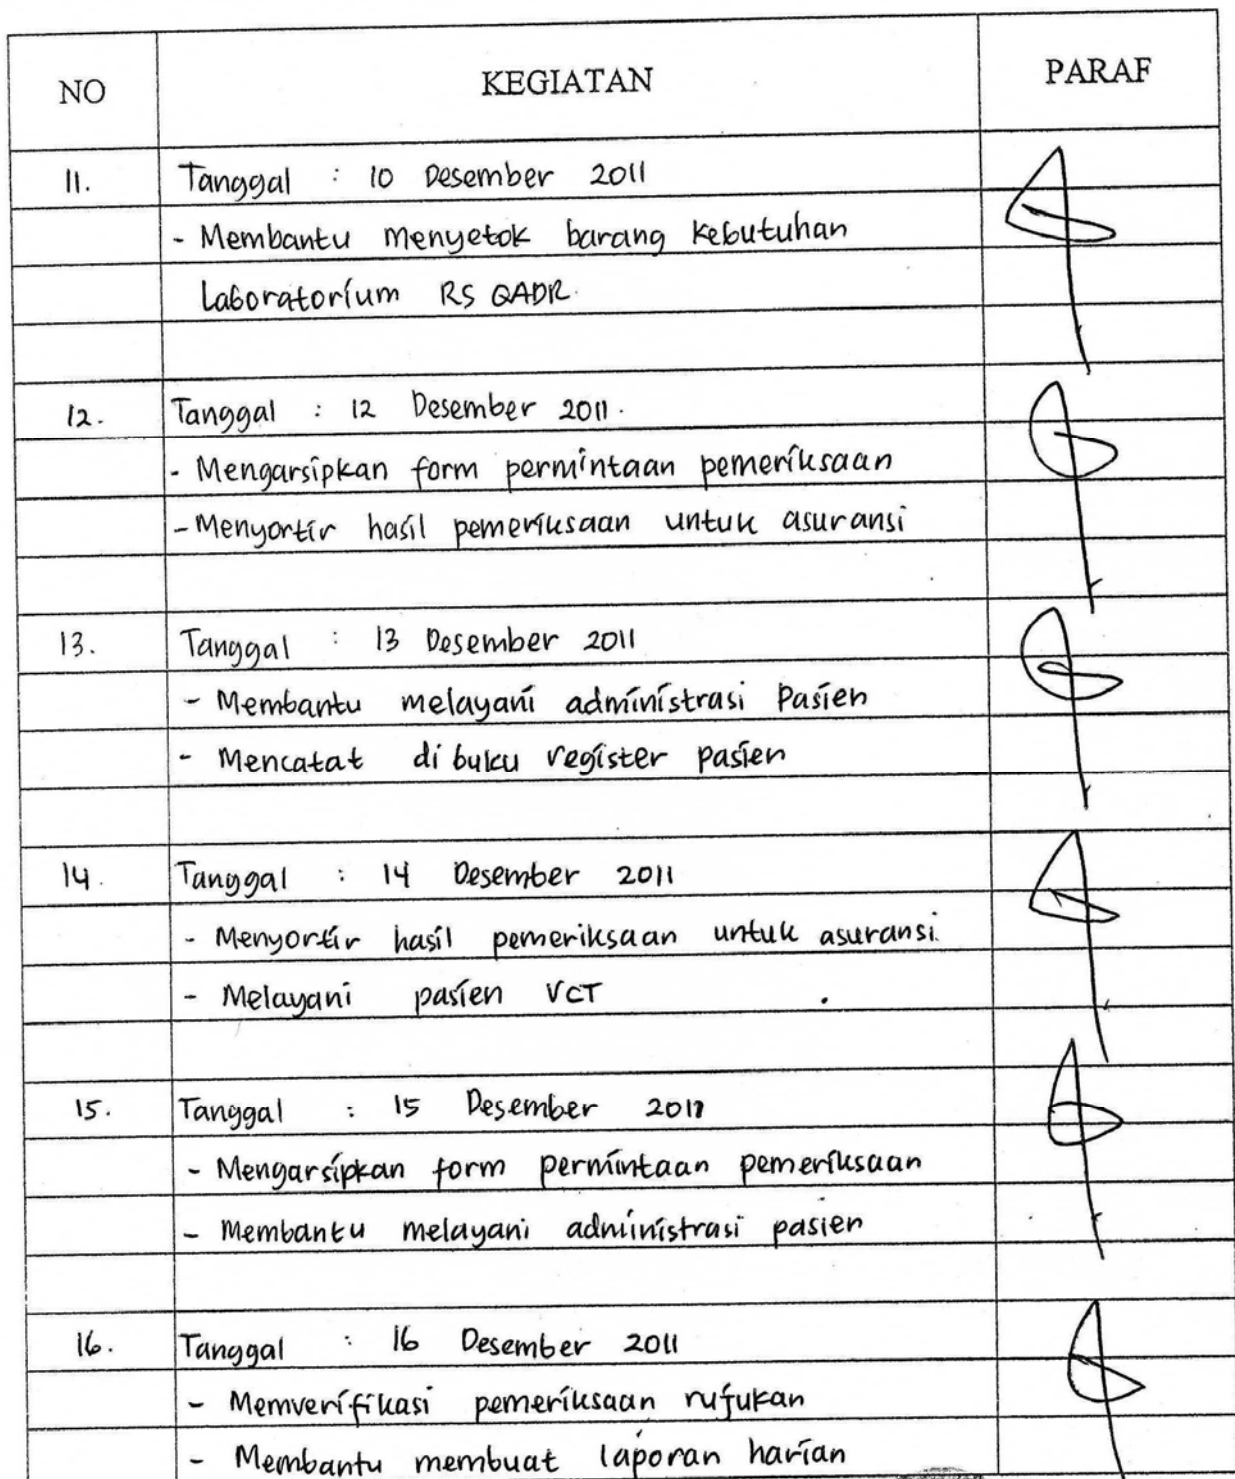 NO KEGIATAN PARAF
11. Tanggal : 10 Desember 2011
- Membantu menyetok barang kebutuhan
Laboratorium RS QADR.
12. Tanggal : 12 Desember 2011.
- Mengarsipkan form permintaan pemeriksaan
- Menyortir hasil pemeriksaan untuk asuransi
13. Tanggal : 13 Desember 2011
- Membantu melayani administrasi Pasien
- Mencatat di buku register pasien
14. Tanggal : 14 Desember 2011
- Menyortir hasil pemeriksaan untuk asuransi.
- Melayani pasien VCT
15. Tanggal : 15 Desember 2011
- Mengarsipkan form permintaan pemeriksaan
- Membantu melayani administrasi pasien
16. Tanggal : 16 Desember 2011
- Memverifikasi pemeriksaan rujukan
- Membantu membuat laporan harian